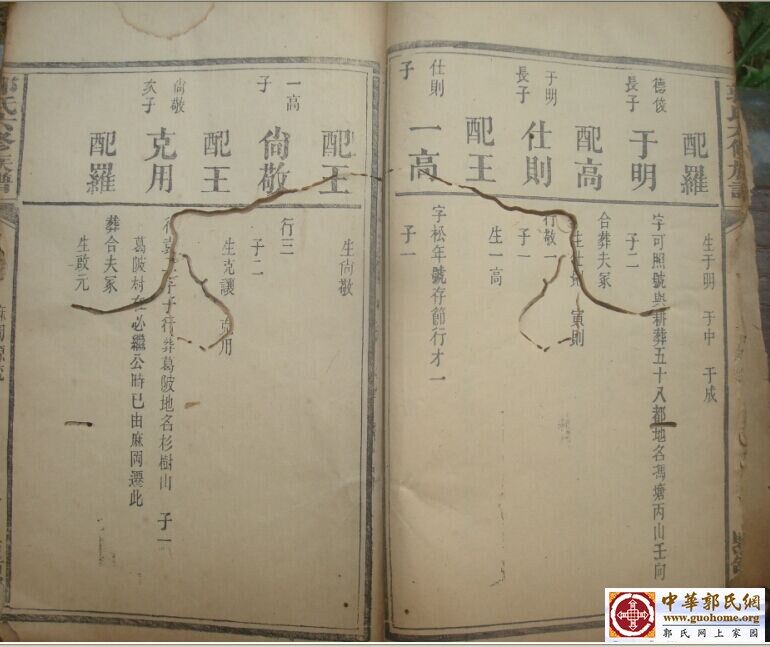 配羅
生于明 于中 于成
德俊
長子
于明
字可照號與耕葬五十八都地名馮塘丙山壬向
子二
配高
合葬夫冢
寅則
于明
長子
仕則
行敬一
子一
配王
生一高
仕則
子
一高
字松年號存節行才一
子一
配王
生尙敬
一高
子
尙敬
行三
子二
配王
生克讓 克用
尙敬
次子
克用
子行葬葛陂地名杉樹山 子一
葛陂村 必繼公時已由麻岡遷此
配羅
葬合夫冢
生啟元
中華郭氏網
www.guohome.org
郭氏网上家园